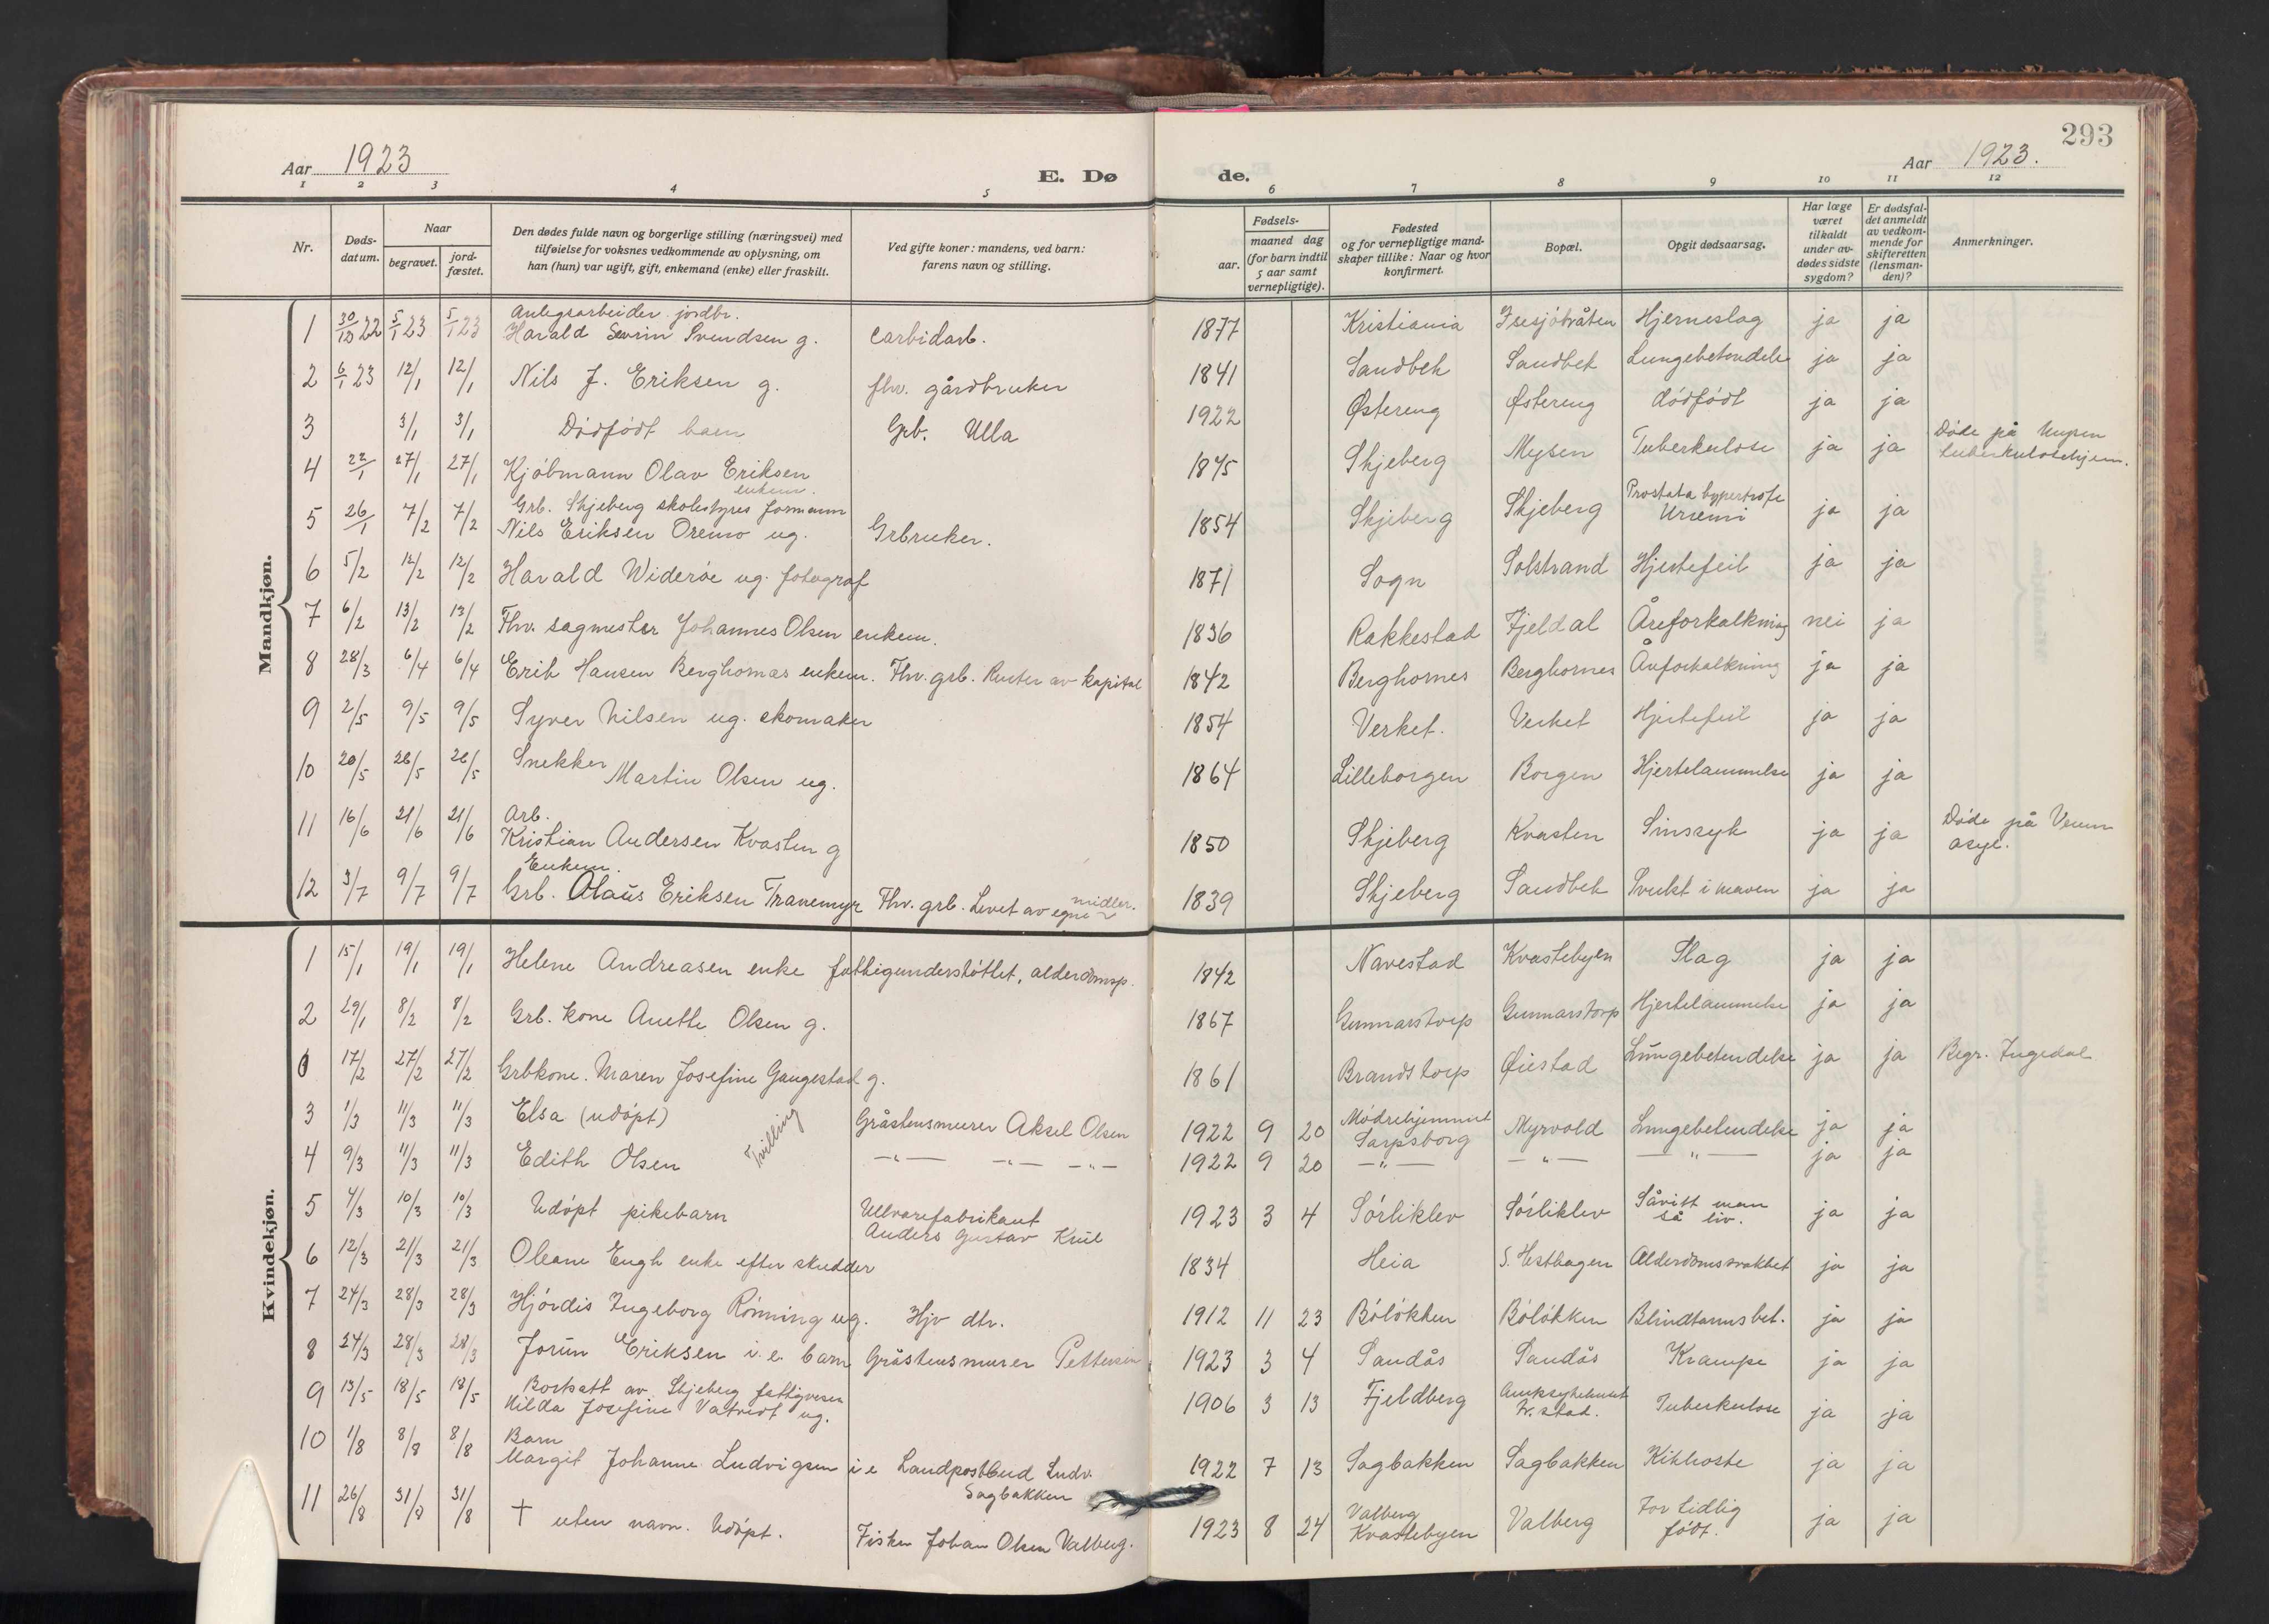 293
Aar 1923
E. Dø
de.
Aar 1923.
1 2 3 4 5 6 7 8 9 10 11 12
Nr.
Døds-datum.
Naar
begravet.
jord-fæstet.
Den dødes fulde navn og borgerlige stilling (næringsvei) med
tilføielse for voksnes vedkommende av oplysning, om
han (hun) var ugift, gift, enkemand (enke) eller fraskilt.
Ved gifte koner: mandens, ved barn:
farens navn og stilling.
Fødsels-
aar.
maaned dag
(for barn indtil
5 aar samt
vernepligtige).
Fødested
og for vernepligtige mand-
skaper tillike: Naar og hvor
konfirmert.
Bopæl.
Opgit dødsaarsag.
Har læge
været
tilkaldt
under av-
dødes sidste
sygdom?
Er dødsfal-
det anmeldt
av vedkom-
mende for
skifteretten
(lensman-
den)?
Anmerkninger.
Mandkjøn.
1 30/12 22 5/1 23 5/1 23 Anlegsarbeider jordbr. Harald Sevrin Svendsen g. Carbidarb. 1877 Kristiania Isesjøbråten Hjerneslag ja ja
2 6/1 23 12/1 12/1 Nils J. Eriksen g. fhv. gårdbruker 1841 Sandbek Sandbek Lungebetendelse ja ja
3 3/1 3/1 Dødfødt barn Grb. Ulla 1922 Østereng Østereng dødfødt ja ja
4 22/1 27/1 27/1 Kjøbmann Olav Eriksen enkem. 1875 Skjeberg Mysen Tuberkulose ja ja Døde på tuberkulosehjem.
5 26/1 7/2 7/2 Grb. Skjeberg skolestyres formann Nils Eriksen Oremo ug. Grbruker. 1854 Skjeberg Skjeberg Prostata hypertrofi Uræmi ja ja
6 5/2 12/2 12/2 Harald Widerøe ug. fotograf 1871 Sogn Solstrand Hjertefeil ja ja
7 6/2 13/2 13/2 Fhv. sagmester Johannes Olsen enkem. 1836 Rakkestad Fjeldal Åreforkalkning nei ja
8 28/3 6/4 6/4 Erik Hansen Berghornæs enkem. Fhv. grb. Renter av kapital 1842 Berghornes Berghornes Åreforkalkning ja ja
9 2/5 9/5 9/5 Syver Nilsen ug. skomaker 1854 Verket. Verket Hjertefeil ja ja
10 20/5 26/5 26/5 Snekker Martin Olsen ug. 1864 Lilleborgen Borgen Hjertelammelse ja ja
11 16/6 21/6 21/6 Arb. Kristian Andersen Kvasten g 1850 Skjeberg Kvasten Sinssyk ja ja Døde på Veum asyl.
12 3/7 9/7 9/7 Enkem. Grb. Olaus Eriksen Tranemyr Fhv. grb. Levet av egne midler. 1839 Skjeberg Sandbek Svulst i maven ja ja
Kvindekjøn.
1 15/1 19/1 19/1 Helene Andreasen enke fattigunderstøttet, alderdomsp. 1842 Navestad Kvastebyen Slag ja ja
2 29/1 8/2 8/2 Grb. kone Anette Olsen g. 1867 Gunnarstorp Gunnarstorp Hjertelammelse ja ja
0 17/2 27/2 27/2 Grbkone. Maren Josefine Gaugestad g. 1861 Brandstorp Øiestad Lungebetendelse ja ja Begr. Ingedal
3 1/3 11/3 11/3 Elsa (udøpt) Tvilling Gråstensmurer Aksel Olsen 1922 9 20 Mødrehjemmet Sarpsborg Myrvold Lungebetendelse ja ja
4 9/3 11/3 11/3 Edith Olsen —"— —"— —"— 1922 9 20 —"— —"— —"— ja ja
5 4/3 10/3 10/3 Udøpt pikebarn Ullvarefabrikant Anders Gustav 1923 3 4 Sørliklev Sørliklev Såvitt man så liv. ja ja
6 12/3 21/3 21/3 Oleane Engh enke efter skudder 1834 Heia S. Hesthagen Alderdomssvakhet ja ja
7 24/3 28/3 28/3 Hjørdis Ingeborg Rønning ug. Hjv dtr. 1912 11 23 Bøløkken Bøløkken Blindtarmsbet. ja ja
8 24/3 28/3 28/3 Jorun Eriksen i.e. barn Gråstensmurer Pettersen 1923 3 4 Sandås Sandås Krampe ja ja
9 13/5 18/5 18/5 Bortsatt av Skjeberg fattigvesen Hilda Josefine Vatvedt ug. 1906 3 13 Fjeldberg Amtssykehuset Fr.stad. Tuberkulose ja ja
10 1/8 8/8 8/8 Barn Margit Johanne Ludvigsen i e Landpostbud Ludv. Sagbakken 1922 7 13 Sagbakken Sagbakken Kikhoste ja ja
11 26/8 31/8 31/8 † uten navn. Udøpt. Fisker Johan Olsen Valberg. 1923 8 24 Valberg Kvastebyen Valberg For tidlig født. ja ja